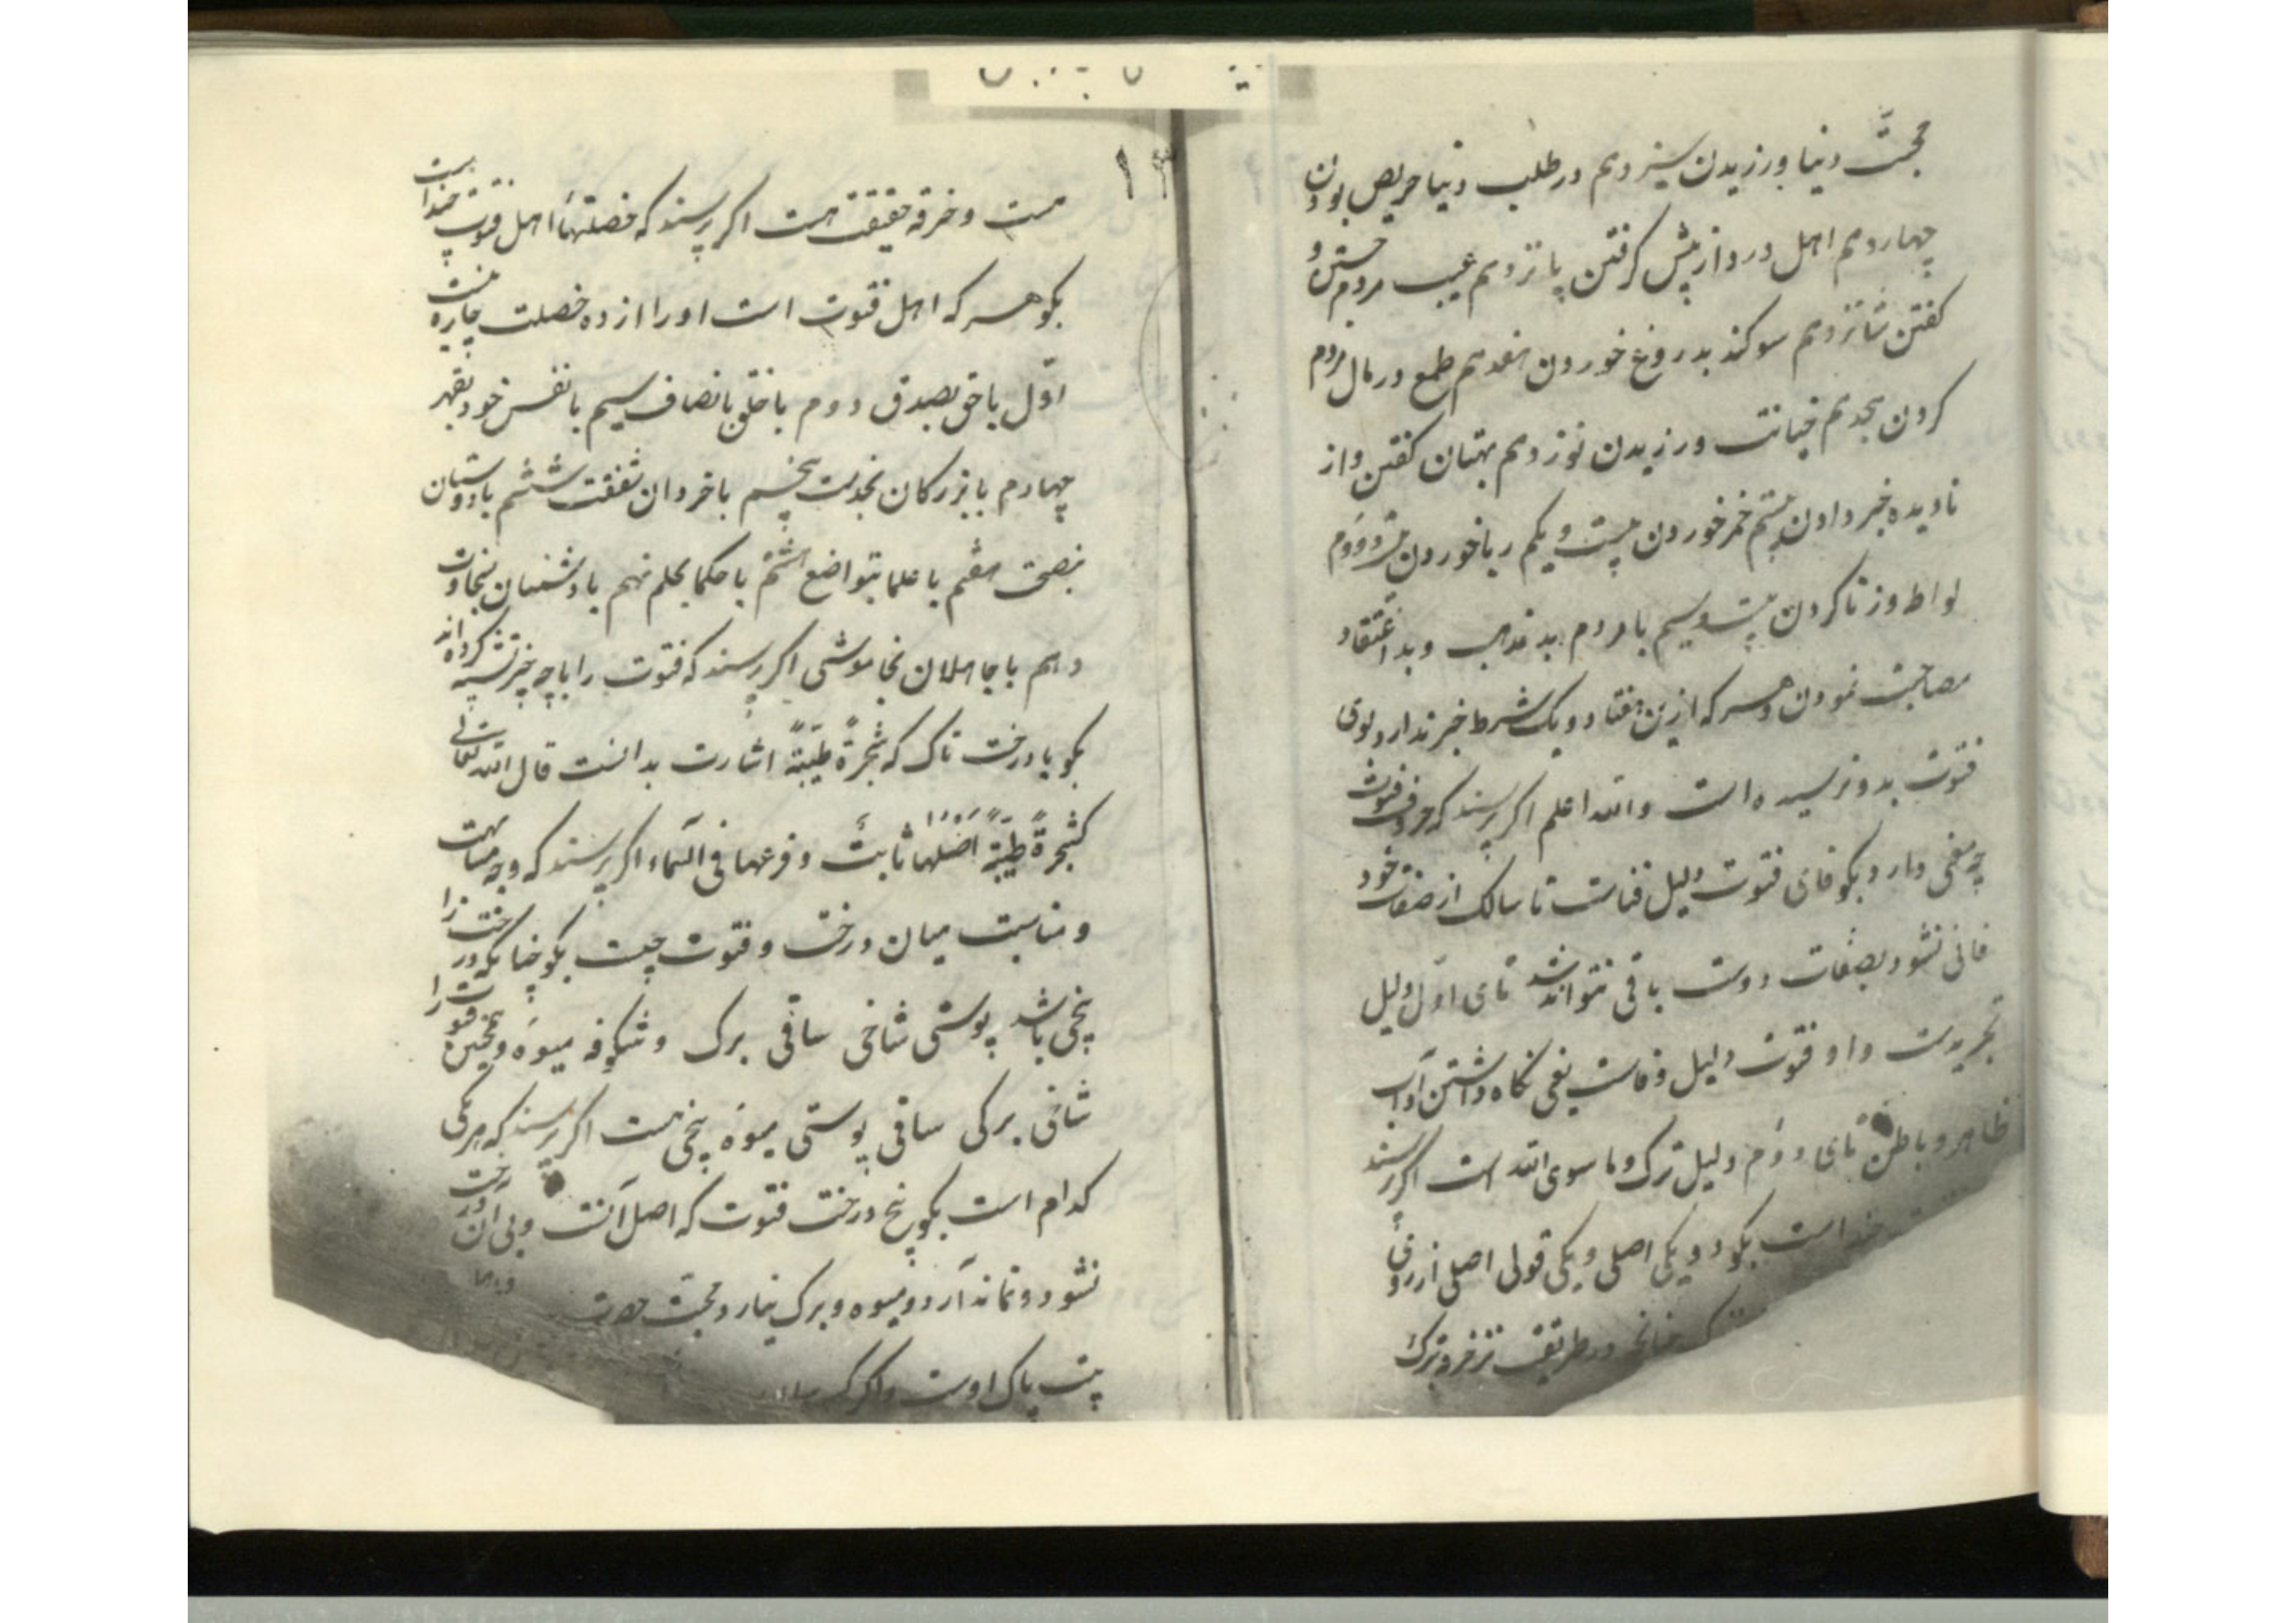 محبّت دنیا ورزیدن سیزدهم در طلب دنیا حریص بودن
چهاردهم اهل درد از پیش گرفتن پانزدهم عیب مردم جستن و
کفتن شانزدهم سوکند بدروغ خوردن هفدهم طمع در مال مردم
کردن هجدهم خیانت ورزیدن نوزدهم بهتان کفتن و از
نادیده خبر دادن بیستم خمر خوردن بیست و یکم ربا خوردن بیست و دوم
لواطه و زنا کردن بیست و سیم با مردم بد مذهب و بد اعتقاد
مصاحبت نمودن و هر که ازین هفتاد و یک شرط خبر ندارد بوی
فتوت بدو نرسیده است والله اعلم اکر پرسند که حروف فتوت
چه معنی دارد بکو فای فتوت دلیل فناست تا سالک از صفات خود
فانی نشود بصفات دوست باقی نتواند شد تای اول دلیل
تجریدست واو فتوت دلیل وفاست یعنی نکاه داشتن آداب
ظاهر و باطن تای دوم دلیل ترک و ما سوی الله است اکر پرسند
چند است بکو دو یکی اصلی و یکی قولی اصلی از روی
چنانچه در طریقت نیز خرقه ترک
۱۳
هست و خرقه حقیقت هست اکر پرسند که خصلتهاء اهل فتوت چند است
بکو هر که اهل فتوت است او را از ده خصلت چاره نیست
اوّل با حق بصدق دوم با خلق بانصاف سیم با نفس خود بقهر
چهارم با بزرکان بخدمت پنجم با خردان بشفقت ششم با دوستان
بنصیحت هفتم با علما بتواضع هشتم با حکما بحلم نهم با دشمنان بسخاوت
دهم با جاهلان بخاموشی اکر پرسند که فتوت را با چه چیز تشبیه کرده اند
بکو با درخت تاک که شجرةً طیبةً اشارت بدانست قال الله تعالی
کشجرةٍ طیبةٍ اصلها ثابتٌ و فرعها فی السّماء اکر پرسند که وجه مشابهت
و مناسبت میان درخت و فتوت چیست بکو چنانکه درخت را
بیخی باشد پوستی شاخی ساقی برک و شکوفه میوه و همچنین فتوت را
شاخی برکی ساقی پوستی میوه بیخی هست اکر پرسند که هر یکی
کدام است بکو بیخ درخت فتوت که اصل آنست و بی آن درخت
نشود و نماند آرد و میوه و برک نیارد محبّت حضرت
پاک اوست و اکر که